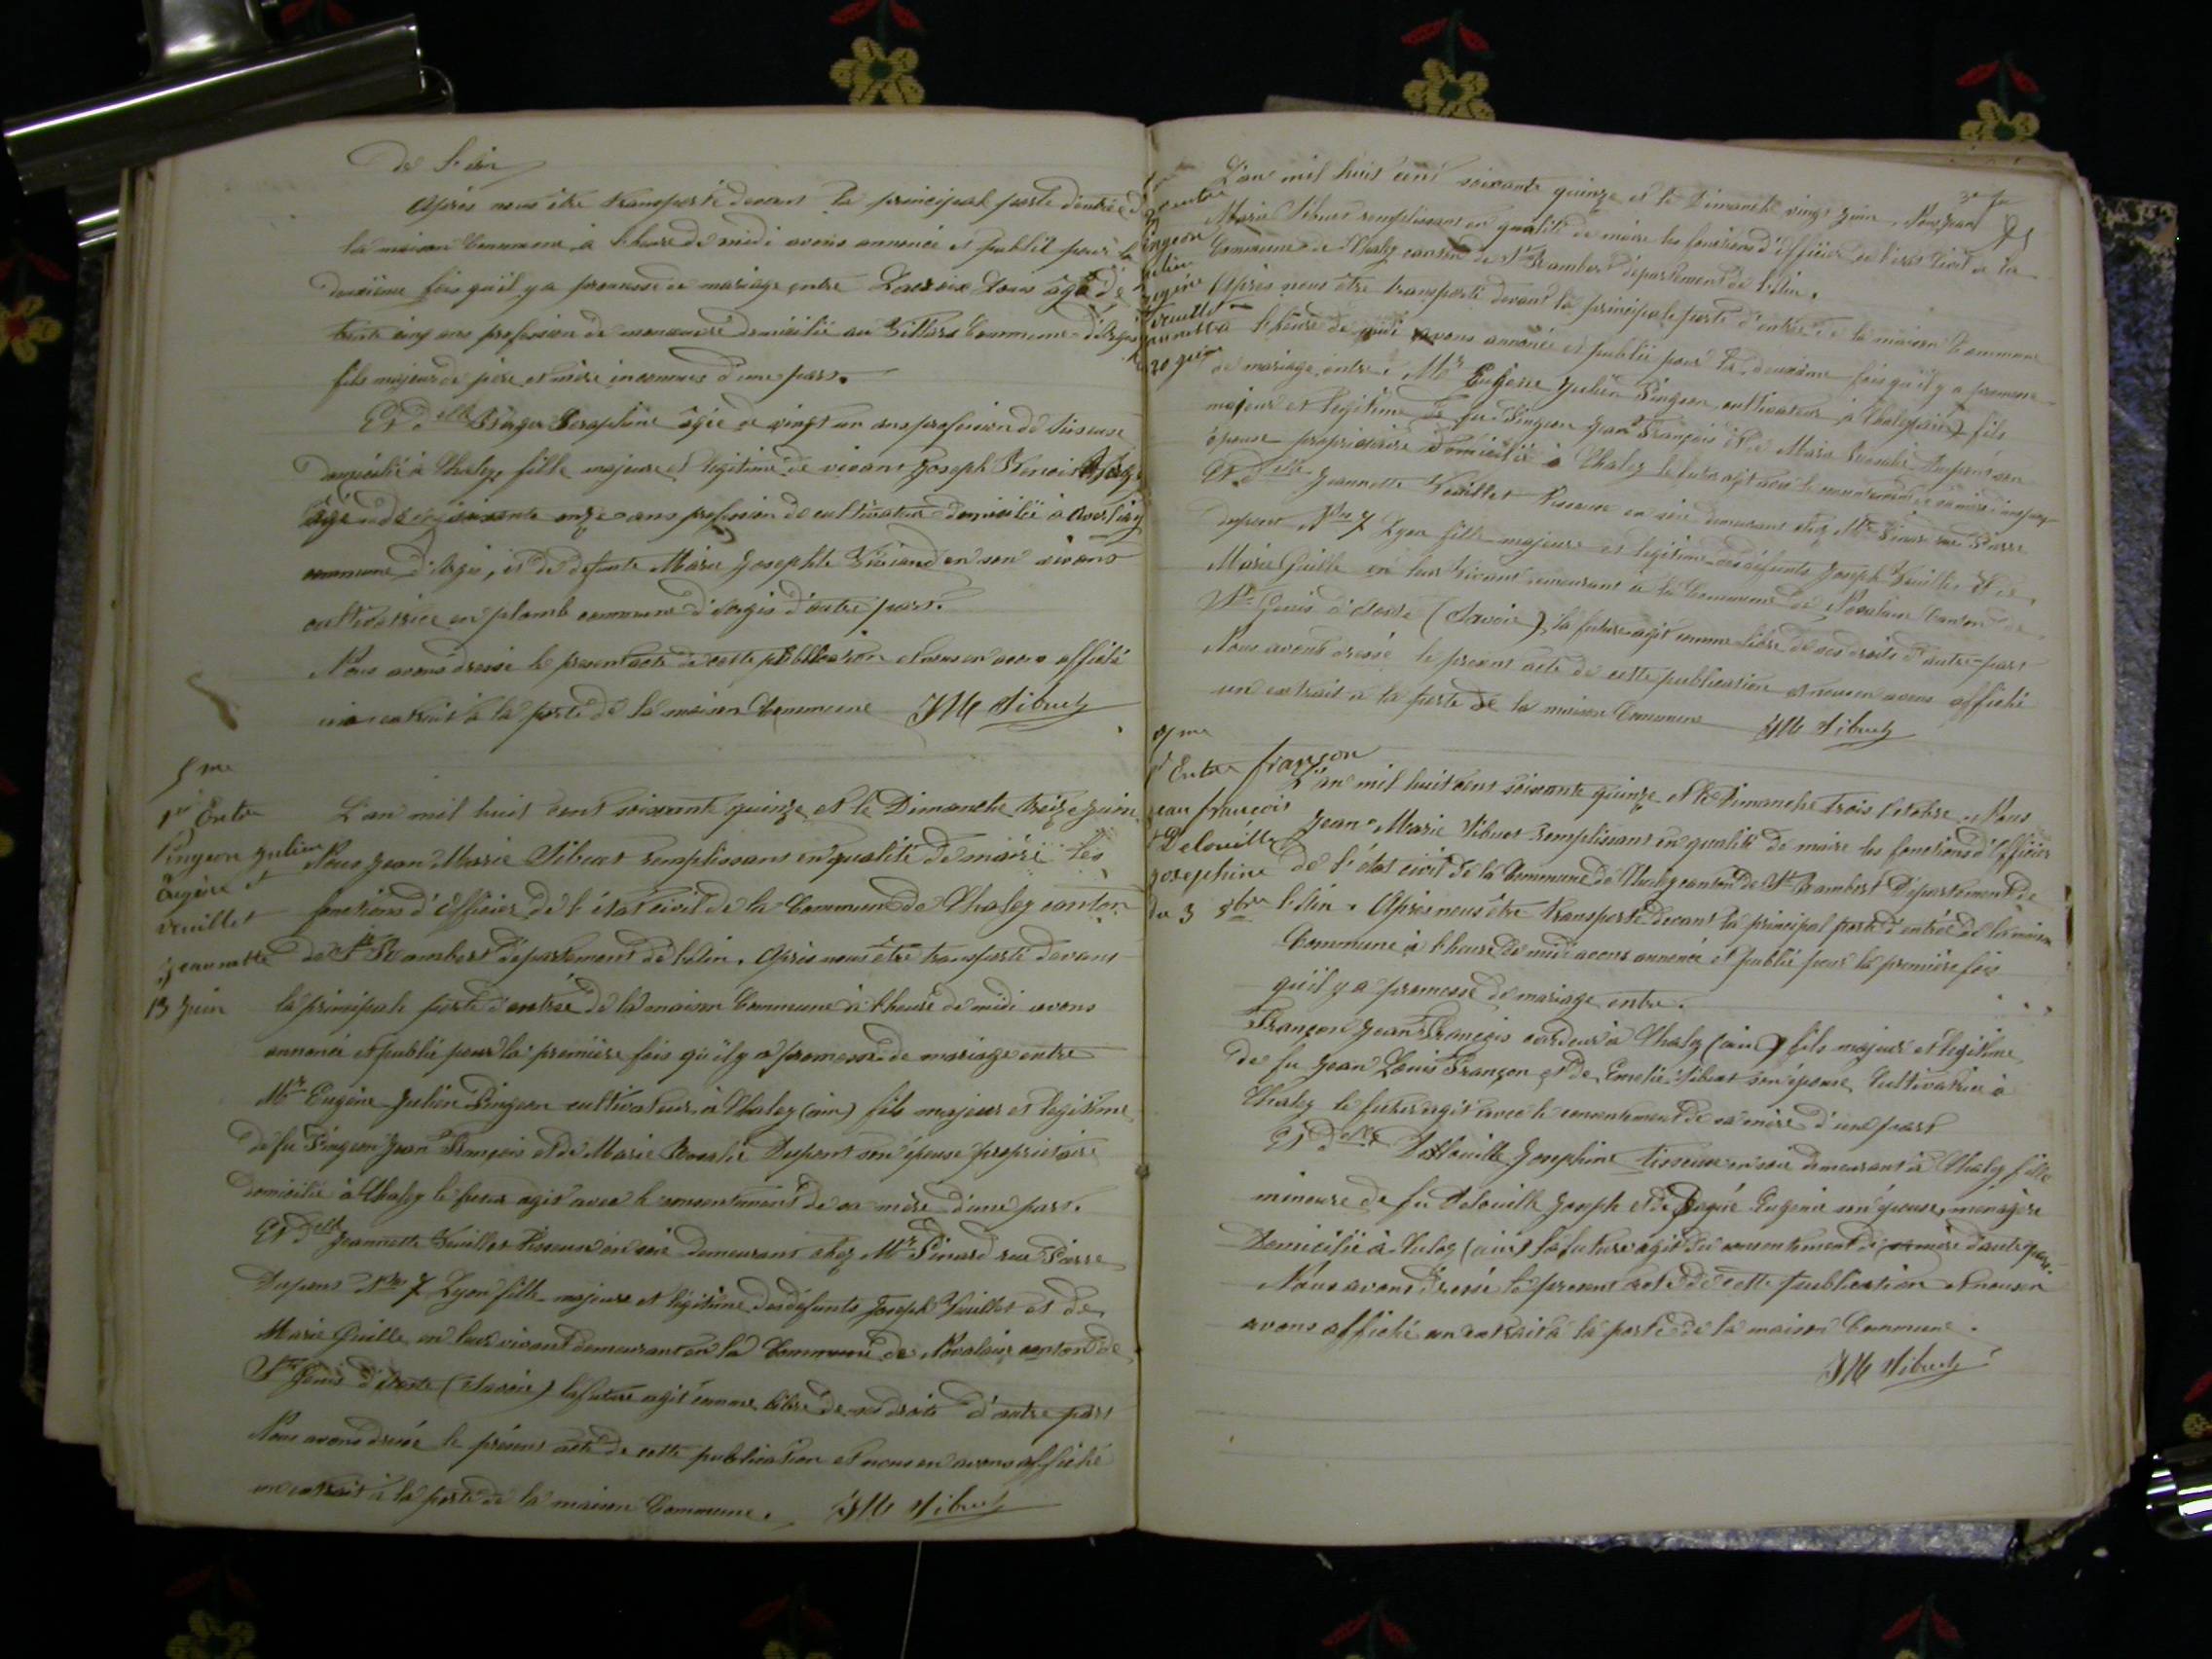 de l'ain
Après nous être transporté devant la principal porte d'entrée de
la maison Commune, à l'heure de midi avons annoncé et publié pour la
deuxième fois qu'il y a promesse de mariage entre Lacroix Louis âgé de
trente cinq ans profession de manœuvre domicilié au Villars Commune d'Argis
fils majeur de père et mère inconnus d'une part.
Et Delle Séraphine âgée de vingt un ans profession de tisseuse
domiciliée à Chaley, fille majeure et légitime de vivant Joseph Benoit
âgé de soixante onze ans profession de cultivateur domicilié à
commune d'Argis, et de défunte Marie Josephte en son vivant
cultivatrice en plomb commune d'Argis d'autre part.
Nous avons dressé le present acte de cette publication et nous en avons affiché
un extrait à la porte de la maison Commune JM Sibuet
5me
1re Entre
Pingeon Julien
Eugène et
Vuillet
Jeannette
13 Juin
L'an mil huit cent soixante quinze et le Dimanche treize juin
Nous Jean Marie Sibuet remplissant en qualité de maire les
fonctions d'Officier de l'état civil de la Commune de Chaley canton
de St Rambert département de l'Ain. Après nous être transporté devant
la principale porte d'entrée de la maison Commune à l'heure de midi avons
annoncé et publié pour la première fois qu'il y a promesse de mariage entre
Mr Eugène Julien Pingeon cultivateur à Chaley (ain) fils majeur et légitime
de feu Pingeon Jean François et de Marie Rosalie Dupont son épouse propriétaire
domiciliée à Chaley le futur agit avec le consentement de sa mère d'une part.
Et Delle Jeannette Vuillet tisseuse en soie demeurant chez Mr Pinard rue Pierre
Dupont Nro 7 Lyon fille majeure et légitime des défunts Joseph Vuillet et de
Marie Guille en leur vivant demeurant en la Commune de Novalaise canton de
St Genis d'Aoste (Savoie) la future agit comme libre de ses droits d'autre part
Nous avons dressé le présent acte de cette publication et nous en avons affiché
un extrait à la porte de la maison Commune. JM Sibuet
entre
Pingeon
Julien
Eugène
Vuillet
Jeannette
20 juin
L'an mil huit cent soixante quinze et le Dimanche vingt juin, Nous Jean
Marie Sibuet remplissant en qualité de maire les fonctions d'Officier de l'état Civil de la
Commune de Chaley canton de St Rambert département de l'Ain.
Après nous être transporté devant la principale porte d'entrée de la maison Commune
à l'heure de midi avons annoncé et publié pour la deuxième fois qu'il y a promesse
de mariage entre: Mr Eugène Julien Pingeon, cultivateur à Chaley (ain) fils
majeur et légitime de feu Pingeon Jean François et de Marie Rosalie Dupont son
épouse propriétaire domiciliée à Chaley le futur agit avec le consentement de sa mère d'une part
Et Delle Jeannette Vuillet tisseuse en soie demeurant chez Mr Pinard rue Pierre
dupont Nro 7 Lyon fille majeure et légitime des défunts Joseph Vuillet et de
Marie Guille en leur vivant demeurant à la Commune de Novalaise Canton de
St Genis d'Aoste (Savoie), la future agit comme libre de ses droits d'autre part
Nous avons dressé le présent acte de cette publication et nous en avons affiché
un extrait à la porte de la maison Commune JM Sibuet
Entre françon
jean françois
et Delouille
josephine
du 3 8bre
L'an mil huit cent soixante quinze et le Dimanche Trois Octobre Nous
Jean Marie Sibuet remplissant en qualité de maire les fonctions d'Officier
de l'état civil de la Commune de Chaley canton de St Rambert Département de
l'Ain. Après nous être transporté devant la principal porte d'entrée de la maison
Commune à l'heure de midi avons annoncé et publié pour la première fois
qu'il y a promesse de mariage entre.
Françon Jean François cardeur à Chaley (ain) fils majeur et légitime
de feu Jean Louis Françon et de Emelie Sibuet son épouse, Cultivatrice à
Chaley le futur agit avec le consentement de sa mère d'une part
Et Delle Delouille Josephine tisseuse en soie demeurant à Chaley fille
mineure de feu Delouille Joseph et de Eugénie son épouse, ménagère
Domiciliée à Chaley (ain) la future agit du consentement de sa mère d'autre part.
Nous avons dressé le present acte de cette publication et nous en
avons affiché un extrait à la porte de la maison Commune.
JM Sibuet